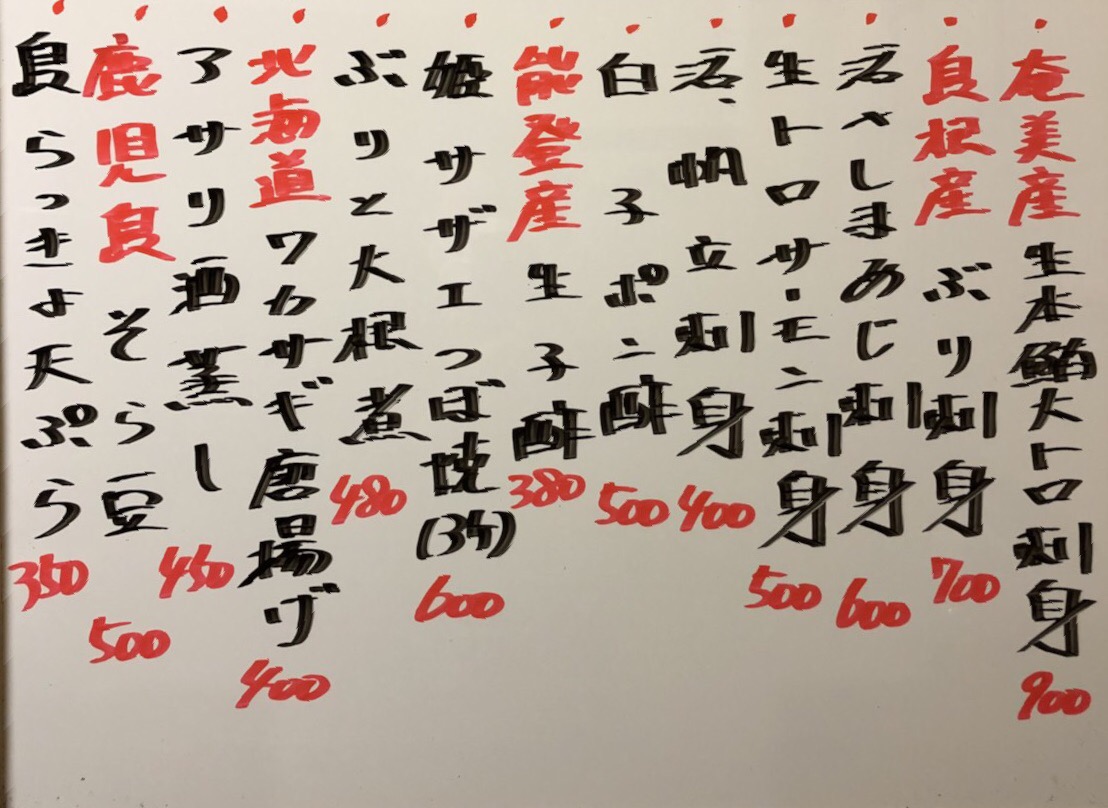 奄美産生本鮪大トロ刺身 900
島根産ぶり刺身 700
活〆しまあじ刺身 600
生トロサーモン刺身 500
活、帆立刺身 400
白子ポン酢 500
能登産生子酢 380
姫サザエつぼ焼(3ケ) 600
ぶりと大根煮 480
北海道ワカサギ唐揚げ 400
アサリ酒蒸し 450
鹿児島そら豆 500
島らっきょ天ぷら 350